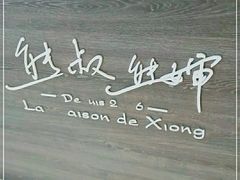 熊叔熊婶
De
6
La aison de Xiong